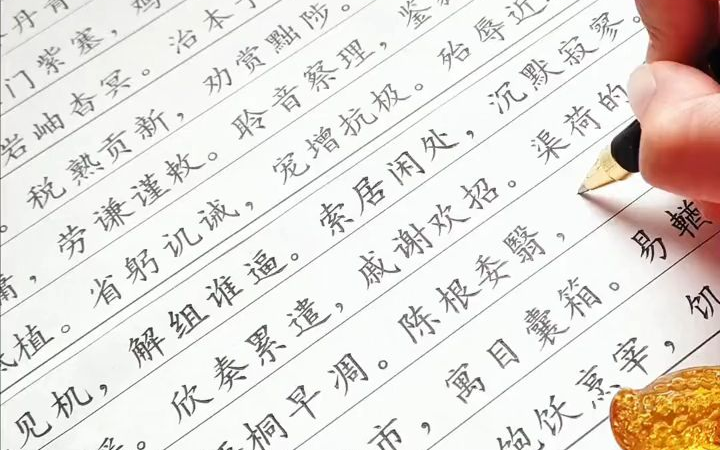 丹青
门紫塞，鸡
岩岫杳冥。治本于
。税熟贡新，劝赏黜陟。
庸，劳谦谨敕。聆音察理，鉴
植。省躬讥诫，宠增抗极。殆辱近
见机，解组谁逼。索居闲处，沉默寂寥。
。欣奏累遣，戚谢欢招。渠荷的
梧桐早凋。陈根委翳，
市，寓目囊箱。易輶
饱饫烹宰，饥